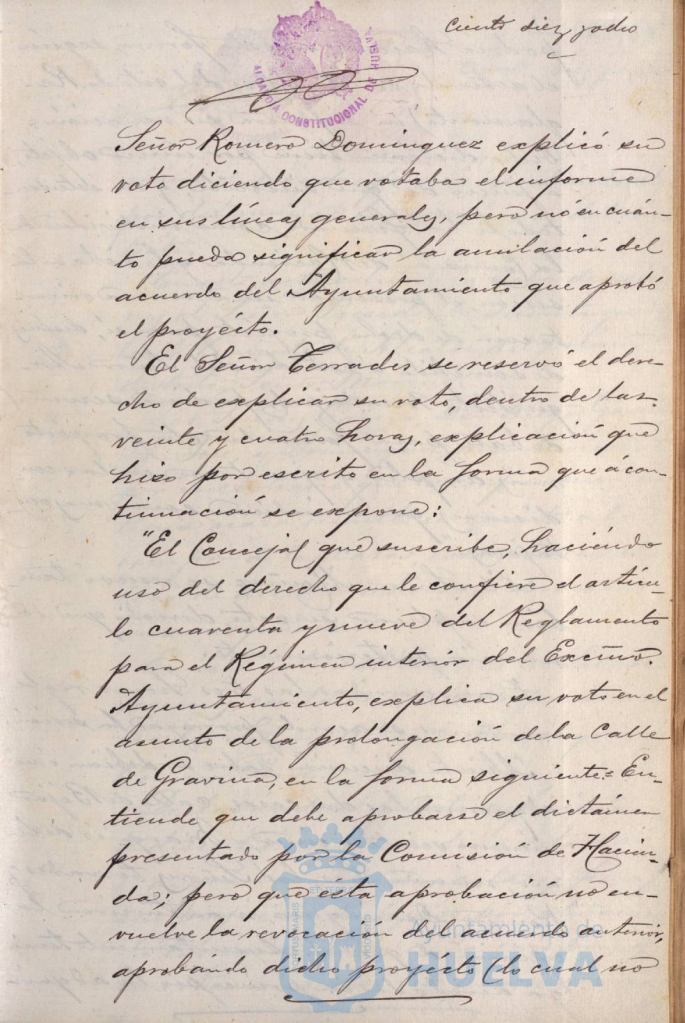 ciento diez y ocho
ALCALDIA CONSTITUCIONAL DE HUELVA
Señor Romero Dominguez explicó su
voto diciendo que votaba el informe
en sus líneas generales, pero nó en cuán-
to pueda significar la anulación del
acuerdo del Ayuntamiento que aprobó
el proyécto.
El Señor Terrades se reservó el dere-
cho de explicar su voto, dentro de las
veinte y cuatro horas, explicación que
hizo por escrito en la forma que á con-
tinuación se expone:
"El Concejal que suscribe, haciéndo
uso del derecho que le confiere el artícu-
lo cuarenta y nueve del Reglamento
para el Régimen interior del Excmo.
Ayuntamiento, explica su voto en el
asunto de la prolongación de la Calle
de Gravina, en la forma siguiente = En-
tiende que debe aprobarse el dictámen
presentado por la Comisión de Hacien-
da; pero que ésta aprobación no en-
vuelve la revocación del acuerdo anterior,
aprobándo dicho proyécto (lo cual no
Ayuntamiento de
HUELVA